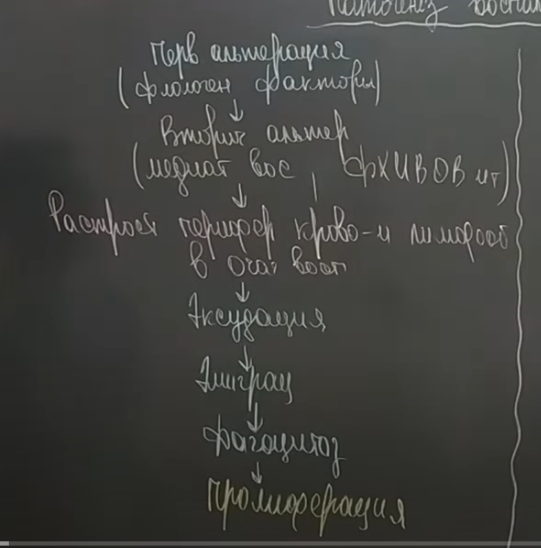 Патогенез воспал
Перв альтерация
(флогоген факторы)
↓
Вторич альтер
(медиат вос | ФХИВОВ ит)
↓
Расстрой перифер крово- и лимфооб
в очаг восп
↓
Экссудация
↓
Эмиграц
↓
фагоцитоз
↓
Пролиферация